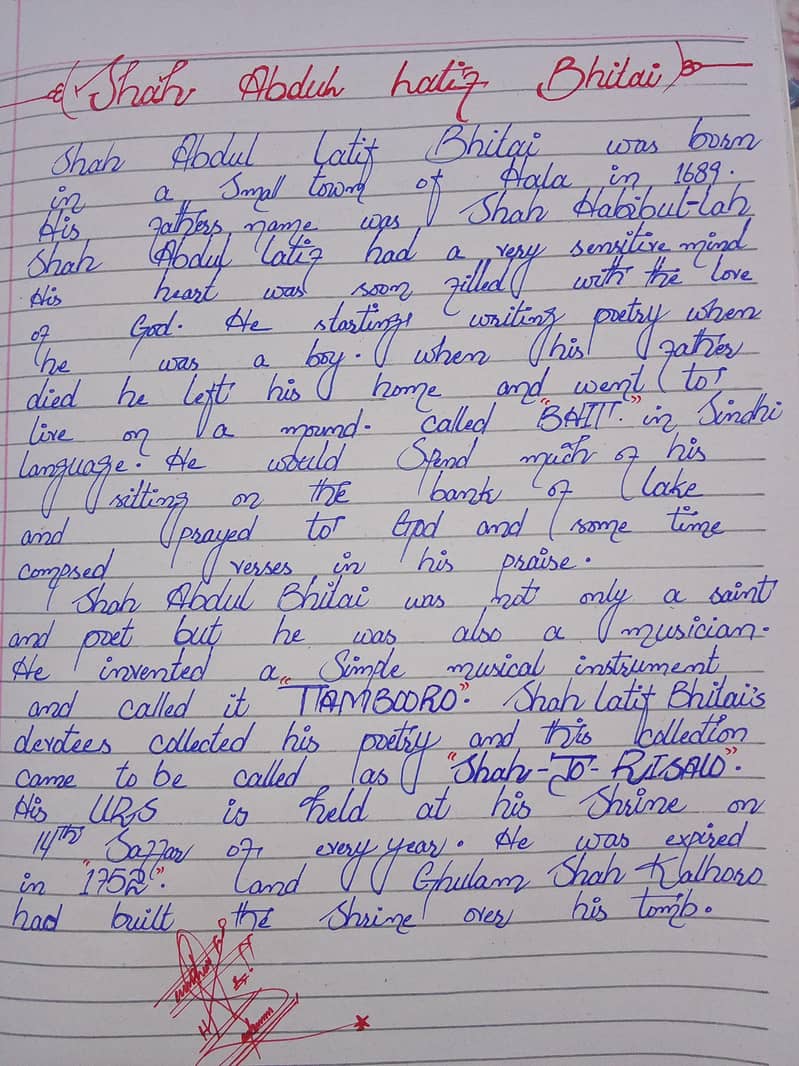 Shah Abduh hatif Bhitai
Shah Abdul Latif Bhitai was born
in a small town of Hala in 1689.
His father's name was Shah Habibul-lah
Shah Abdul Latif had a very sensitive mind
His heart was soon filled with the love
of God. He startings writing poetry when
he was a boy. when his father
died he left his home and went to
live on a mound. called "BAIT." in Sindhi
language. He would Spend much of his
sitting on the bank of lake
and prayed to God and some time
compsed verses in his praise.
Shah Abdul Bhitai was not only a saint
and poet but he was also a musician.
He invented a Simple musical instrument
and called it "TAMBOORO". Shah Latif Bhitai's
devotees collected his poetry and this collection
came to be called as "Shah-Jo-RISALO".
His URS is held at his Shrine on
14th Saffar of every year. He was expired
in "1752". and Ghulam Shah Kalhoro
had built the Shrine over his tomb.